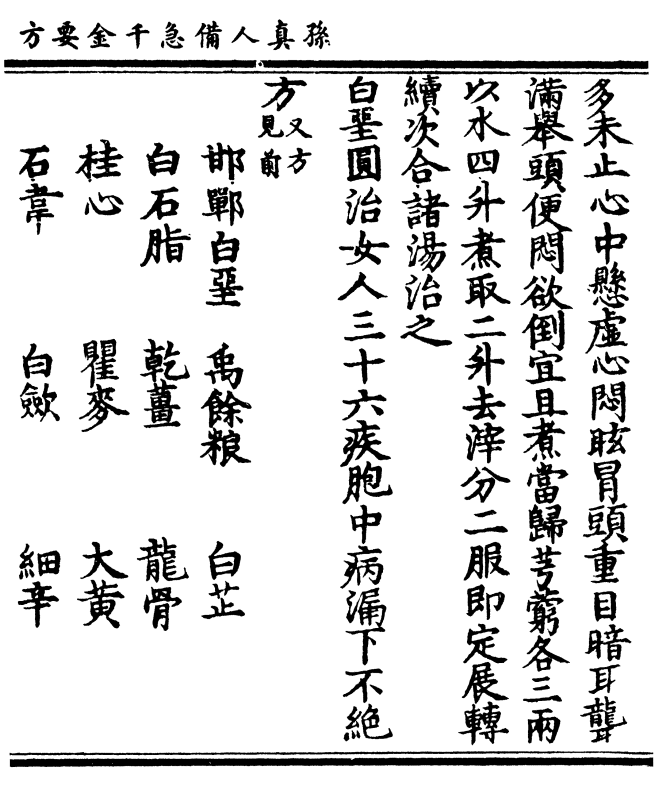 孫真人備急千金要方
多未止心中懸虛心悶眩冒頭重目暗耳聾
滿舉頭便悶欲倒宜且煮當歸芎藭各三兩
以水四升煮取二升去滓分二服即定展轉
續次合諸湯治之
白堊圓治女人三十六疾胞中病漏下不絕
方又方見前
邯鄲白堊 禹餘粮 白芷
白石脂 乾薑 龍骨
桂心 瞿麥 大黃
石韋 白歛 細辛